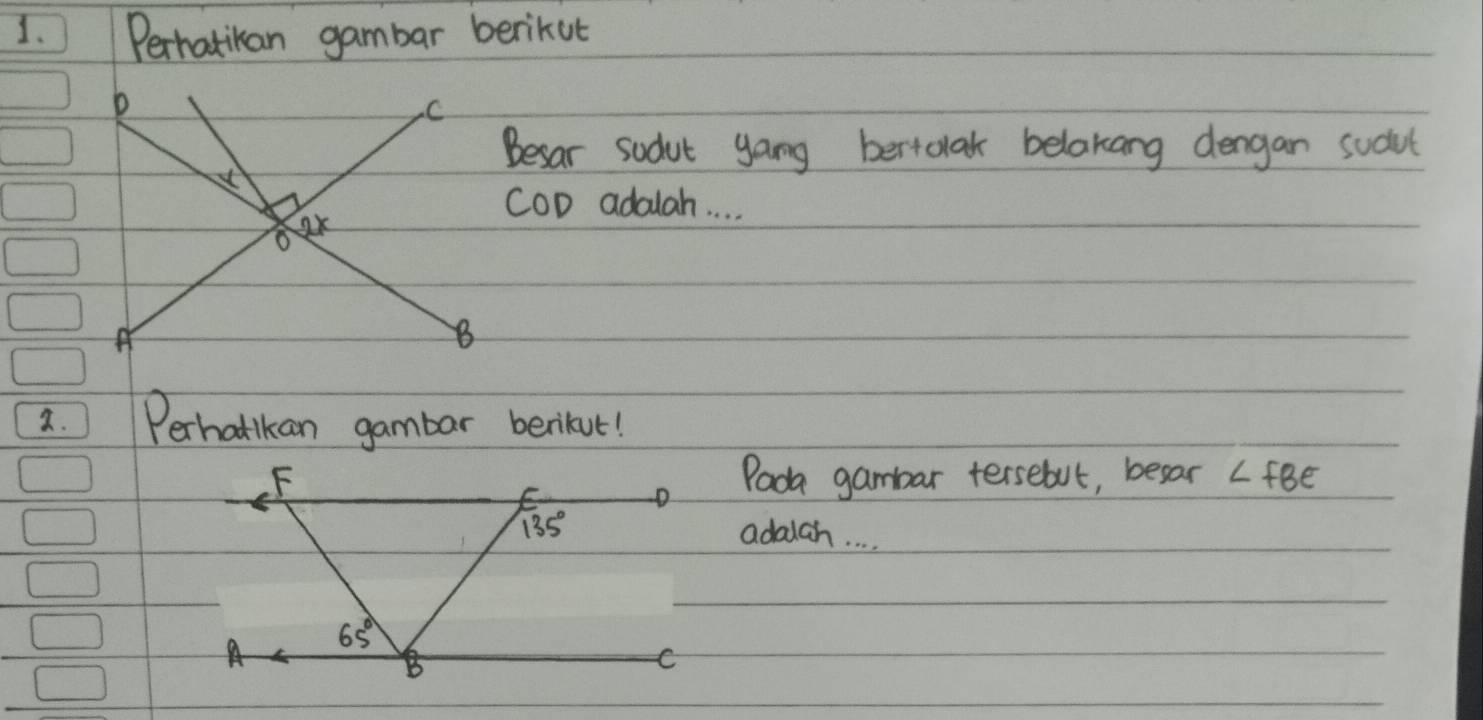 1. Perhatikan gambar berikut
D
C
Besar sudut yang bertolak belakang dengan sudut
x
COD adalah....
O 2x
A
B
2. Perhatikan gambar berikut!
F
E
D
Pada gambar tersebut, besar ∠ FBE
135°
adalah....
65°
A
B
C